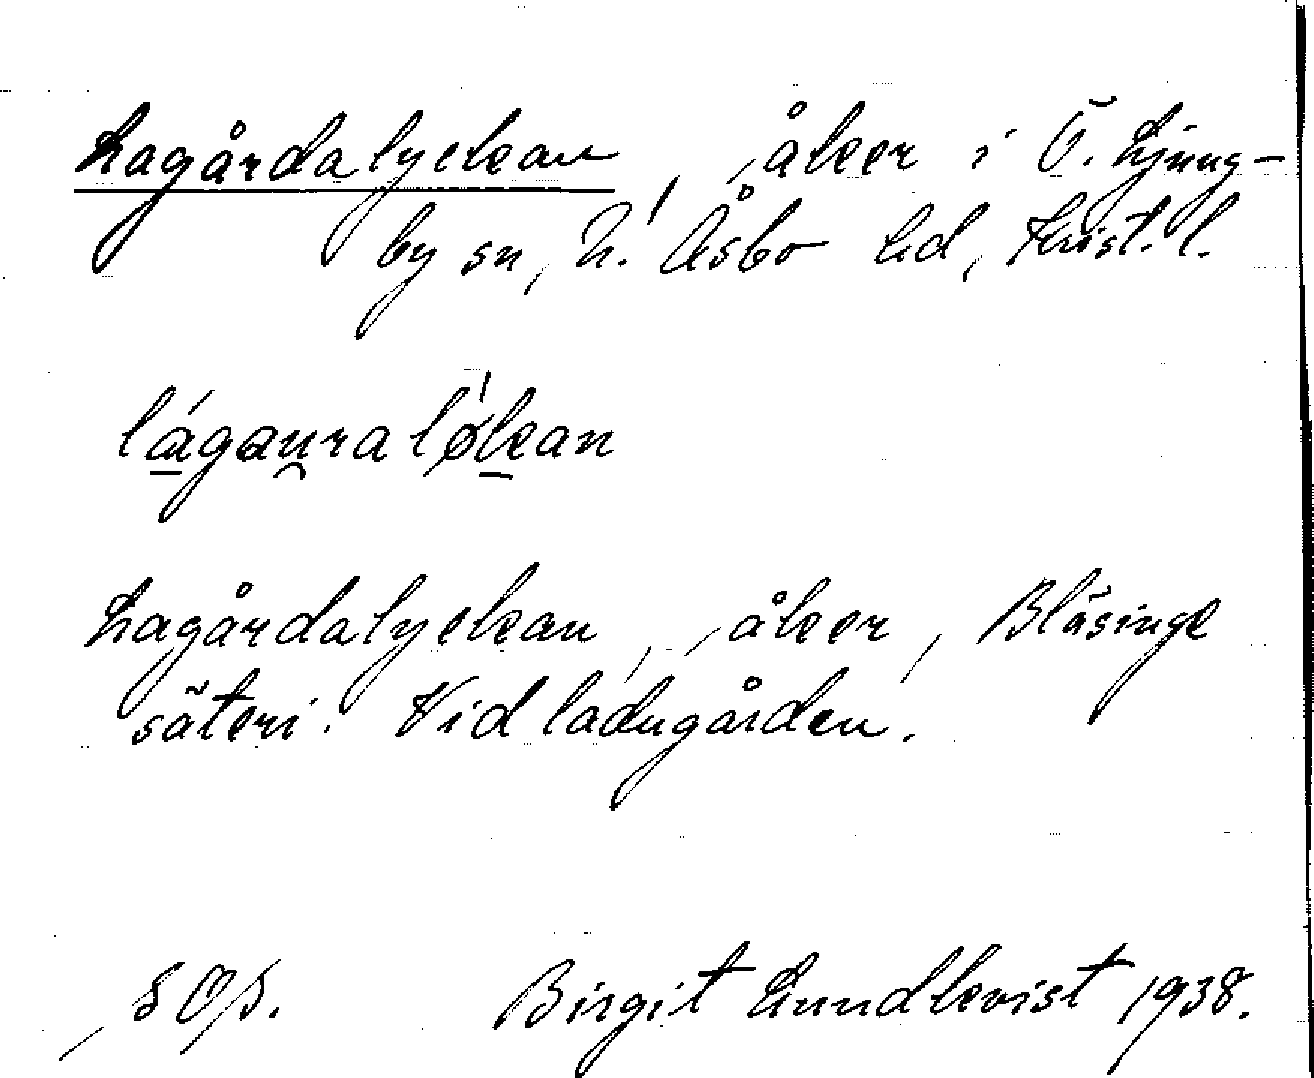 Lagårdalyckan, åker i Ö. Ljung-
by sn, N. Åsbo hd, Krist. l.
lágau̯raló́kan
Lagårdalyckan, åker, Bläsinge
säteri. Vid ladugården.
SOß.	Birgit Lundkvist 1938.